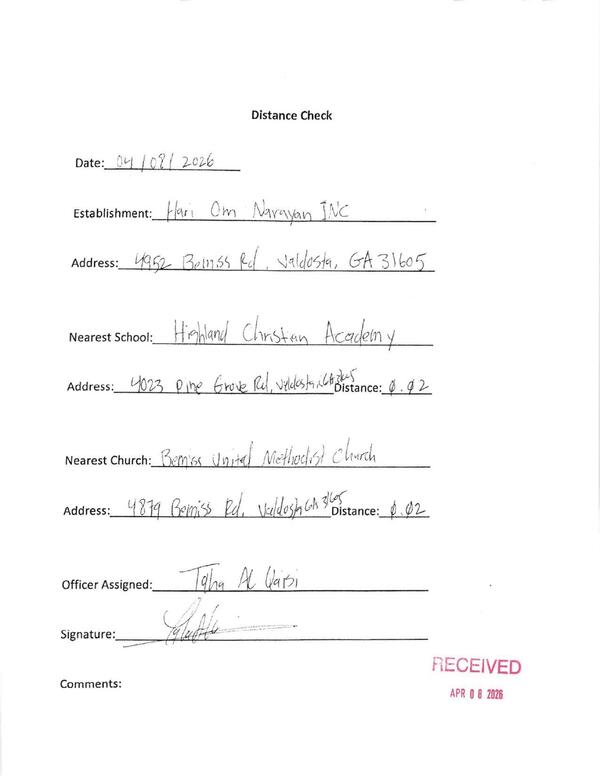 Distance Check
Date: 04/08/2026
Establishment: Hari Om Narayan INC
Address: 4952 Bemiss Rd, Valdosta, GA 31605
Nearest School: Highland Christian Academy
Address: 4023 Pine Grove Rd, Valdosta, GA 31605 Distance: 0.02
Nearest Church: Bemiss United Methodist Church
Address: 4879 Bemiss Rd. Valdosta GA 31605 Distance: 0.02
Officer Assigned: Taha Al
Signature:
RECEIVED
Comments:
APR 08 2026